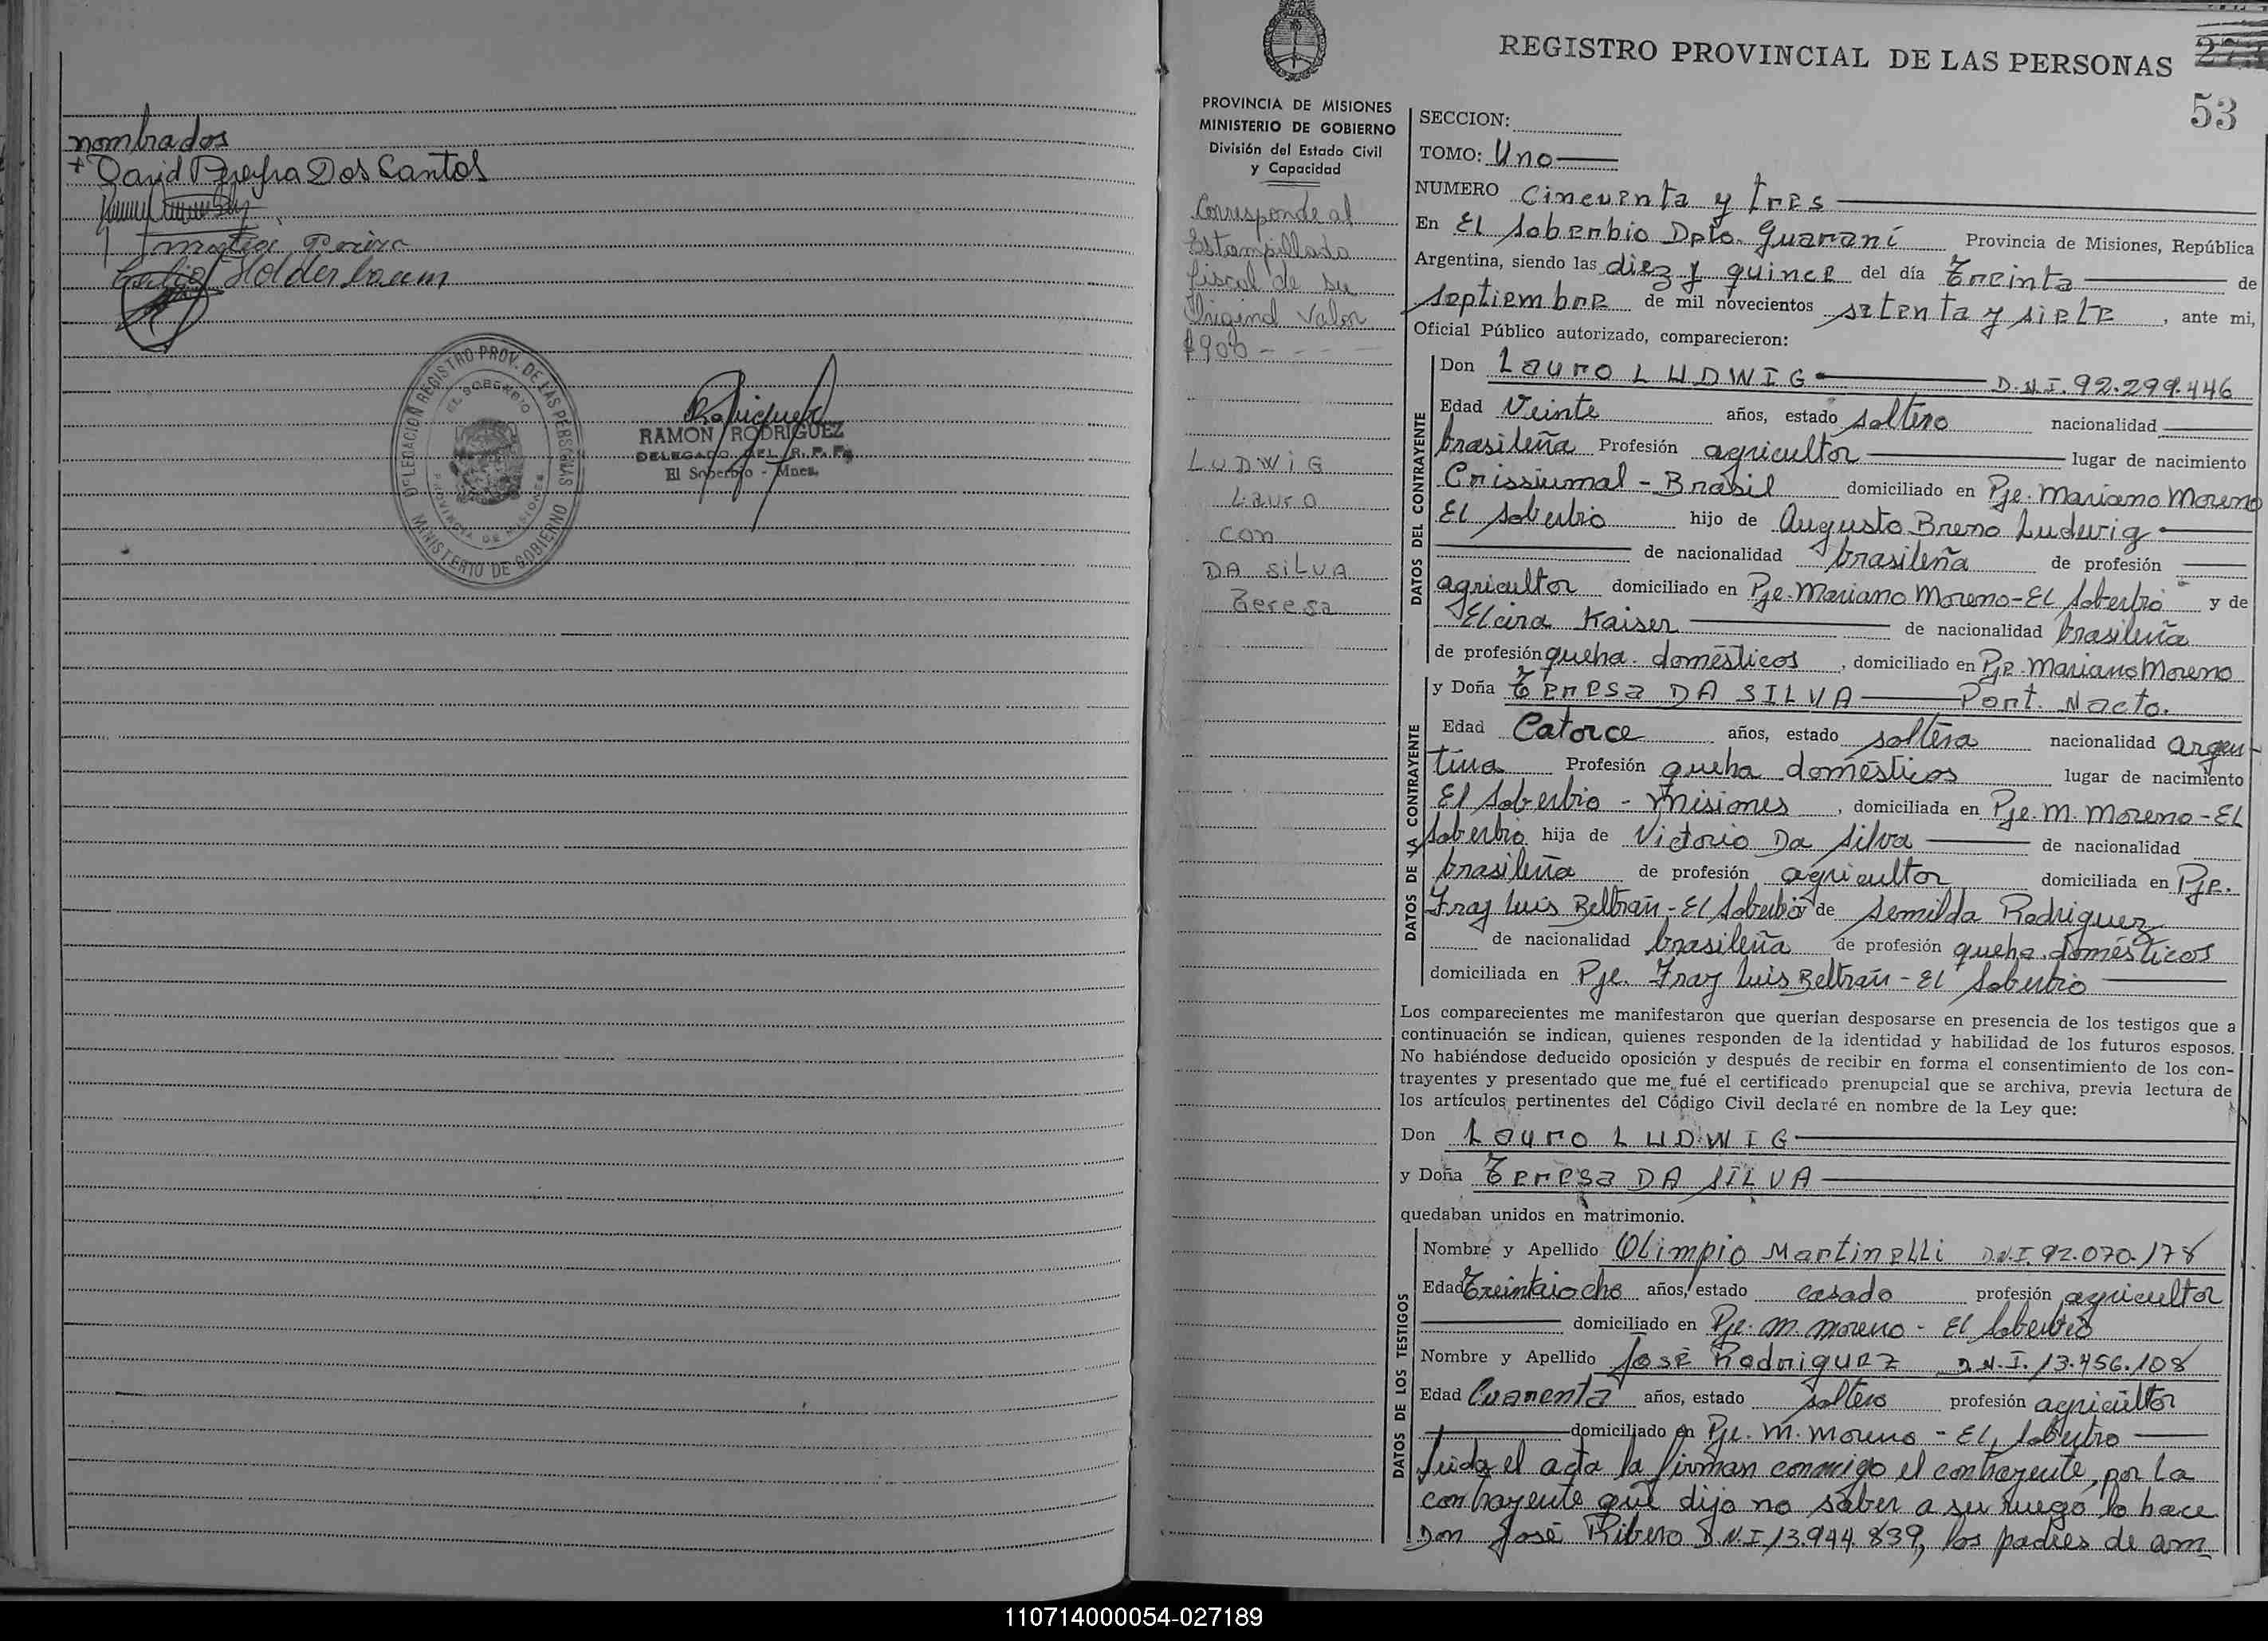 nombrados
+ David Pereyra Dos Santos
Holderbaum
DELEGACION REGISTRO PROV. DE LAS PERSONAS
EL SOBERBIO
PROVINCIA DE MISIONES
MINISTERIO DE GOBIERNO
RAMON RODRIGUEZ
DELEGADO DEL R. P. P.
El Soberbio - Mnes.
REGISTRO PROVINCIAL DE LAS PERSONAS
53
PROVINCIA DE MISIONES
MINISTERIO DE GOBIERNO
División del Estado Civil
y Capacidad
Corresponde al
Estampillado
fiscal de su
Original Valor
$900 - - - -
LUDWIG
Lauro
con
DA SILVA
Teresa
SECCION:
TOMO: Uno
NUMERO Cincuenta y tres
En El Soberbio Dpto. Guaraní Provincia de Misiones, República
Argentina, siendo las diez y quince del día Treinta de
septiembre de mil novecientos setenta y siete, ante mi,
Oficial Público autorizado, comparecieron:
DATOS DEL CONTRAYENTE
Don Lauro LUDWIG D.N.I. 92.299.446
Edad Veinte años, estado soltero nacionalidad
brasileña Profesión agricultor lugar de nacimiento
Crissiumal - Brasil domiciliado en Pje. Mariano Moreno
El Soberbio hijo de Augusto Breno Ludwig
de nacionalidad brasileña de profesión
agricultor domiciliado en Pje. Mariano Moreno - El Soberbio y de
Elcira Kaiser de nacionalidad brasileña
de profesión queha. domésticos, domiciliado en Pje. Mariano Moreno
DATOS DE LA CONTRAYENTE
y Doña Teresa DA SILVA Part. Nacto.
Edad Catorce años, estado soltera nacionalidad argen-
tina Profesión queha domésticos lugar de nacimiento
El Soberbio - Misiones, domiciliada en Pje. M. Moreno - El
Soberbio hija de Victorio Da Silva de nacionalidad
brasileña de profesión agricultor domiciliada en Pje.
Fray Luis Beltrán - El Soberbio y de Semilda Rodriguez
de nacionalidad brasileña de profesión queha. domésticos
domiciliada en Pje. Fray Luis Beltrán - El Soberbio
Los comparecientes me manifestaron que querían desposarse en presencia de los testigos que a
continuación se indican, quienes responden de la identidad y habilidad de los futuros esposos.
No habiéndose deducido oposición y después de recibir en forma el consentimiento de los con-
trayentes y presentado que me fué el certificado prenupcial que se archiva, previa lectura de
los artículos pertinentes del Código Civil declaré en nombre de la Ley que:
Don Lauro LUDWIG
y Doña Teresa DA SILVA
quedaban unidos en matrimonio.
DATOS DE LOS TESTIGOS
Nombre y Apellido Olimpio Martinelli D.N.I. 92.070.178
Edad Treintaiocho años, estado casado profesión agricultor
domiciliado en Pje. M. Moreno - El Soberbio
Nombre y Apellido José Rodriguez D.N.I. 13.456.108
Edad Cuarenta años, estado soltero profesión agricultor
domiciliado en Pje. M. Moreno - El Soberbio
leida el acta la firman conmigo el contrayente, por la
contrayente que dijo no saber a su ruego lo hace
Don José Ribero D.N.I 13.944.839, los padres de am
110714000054-027189